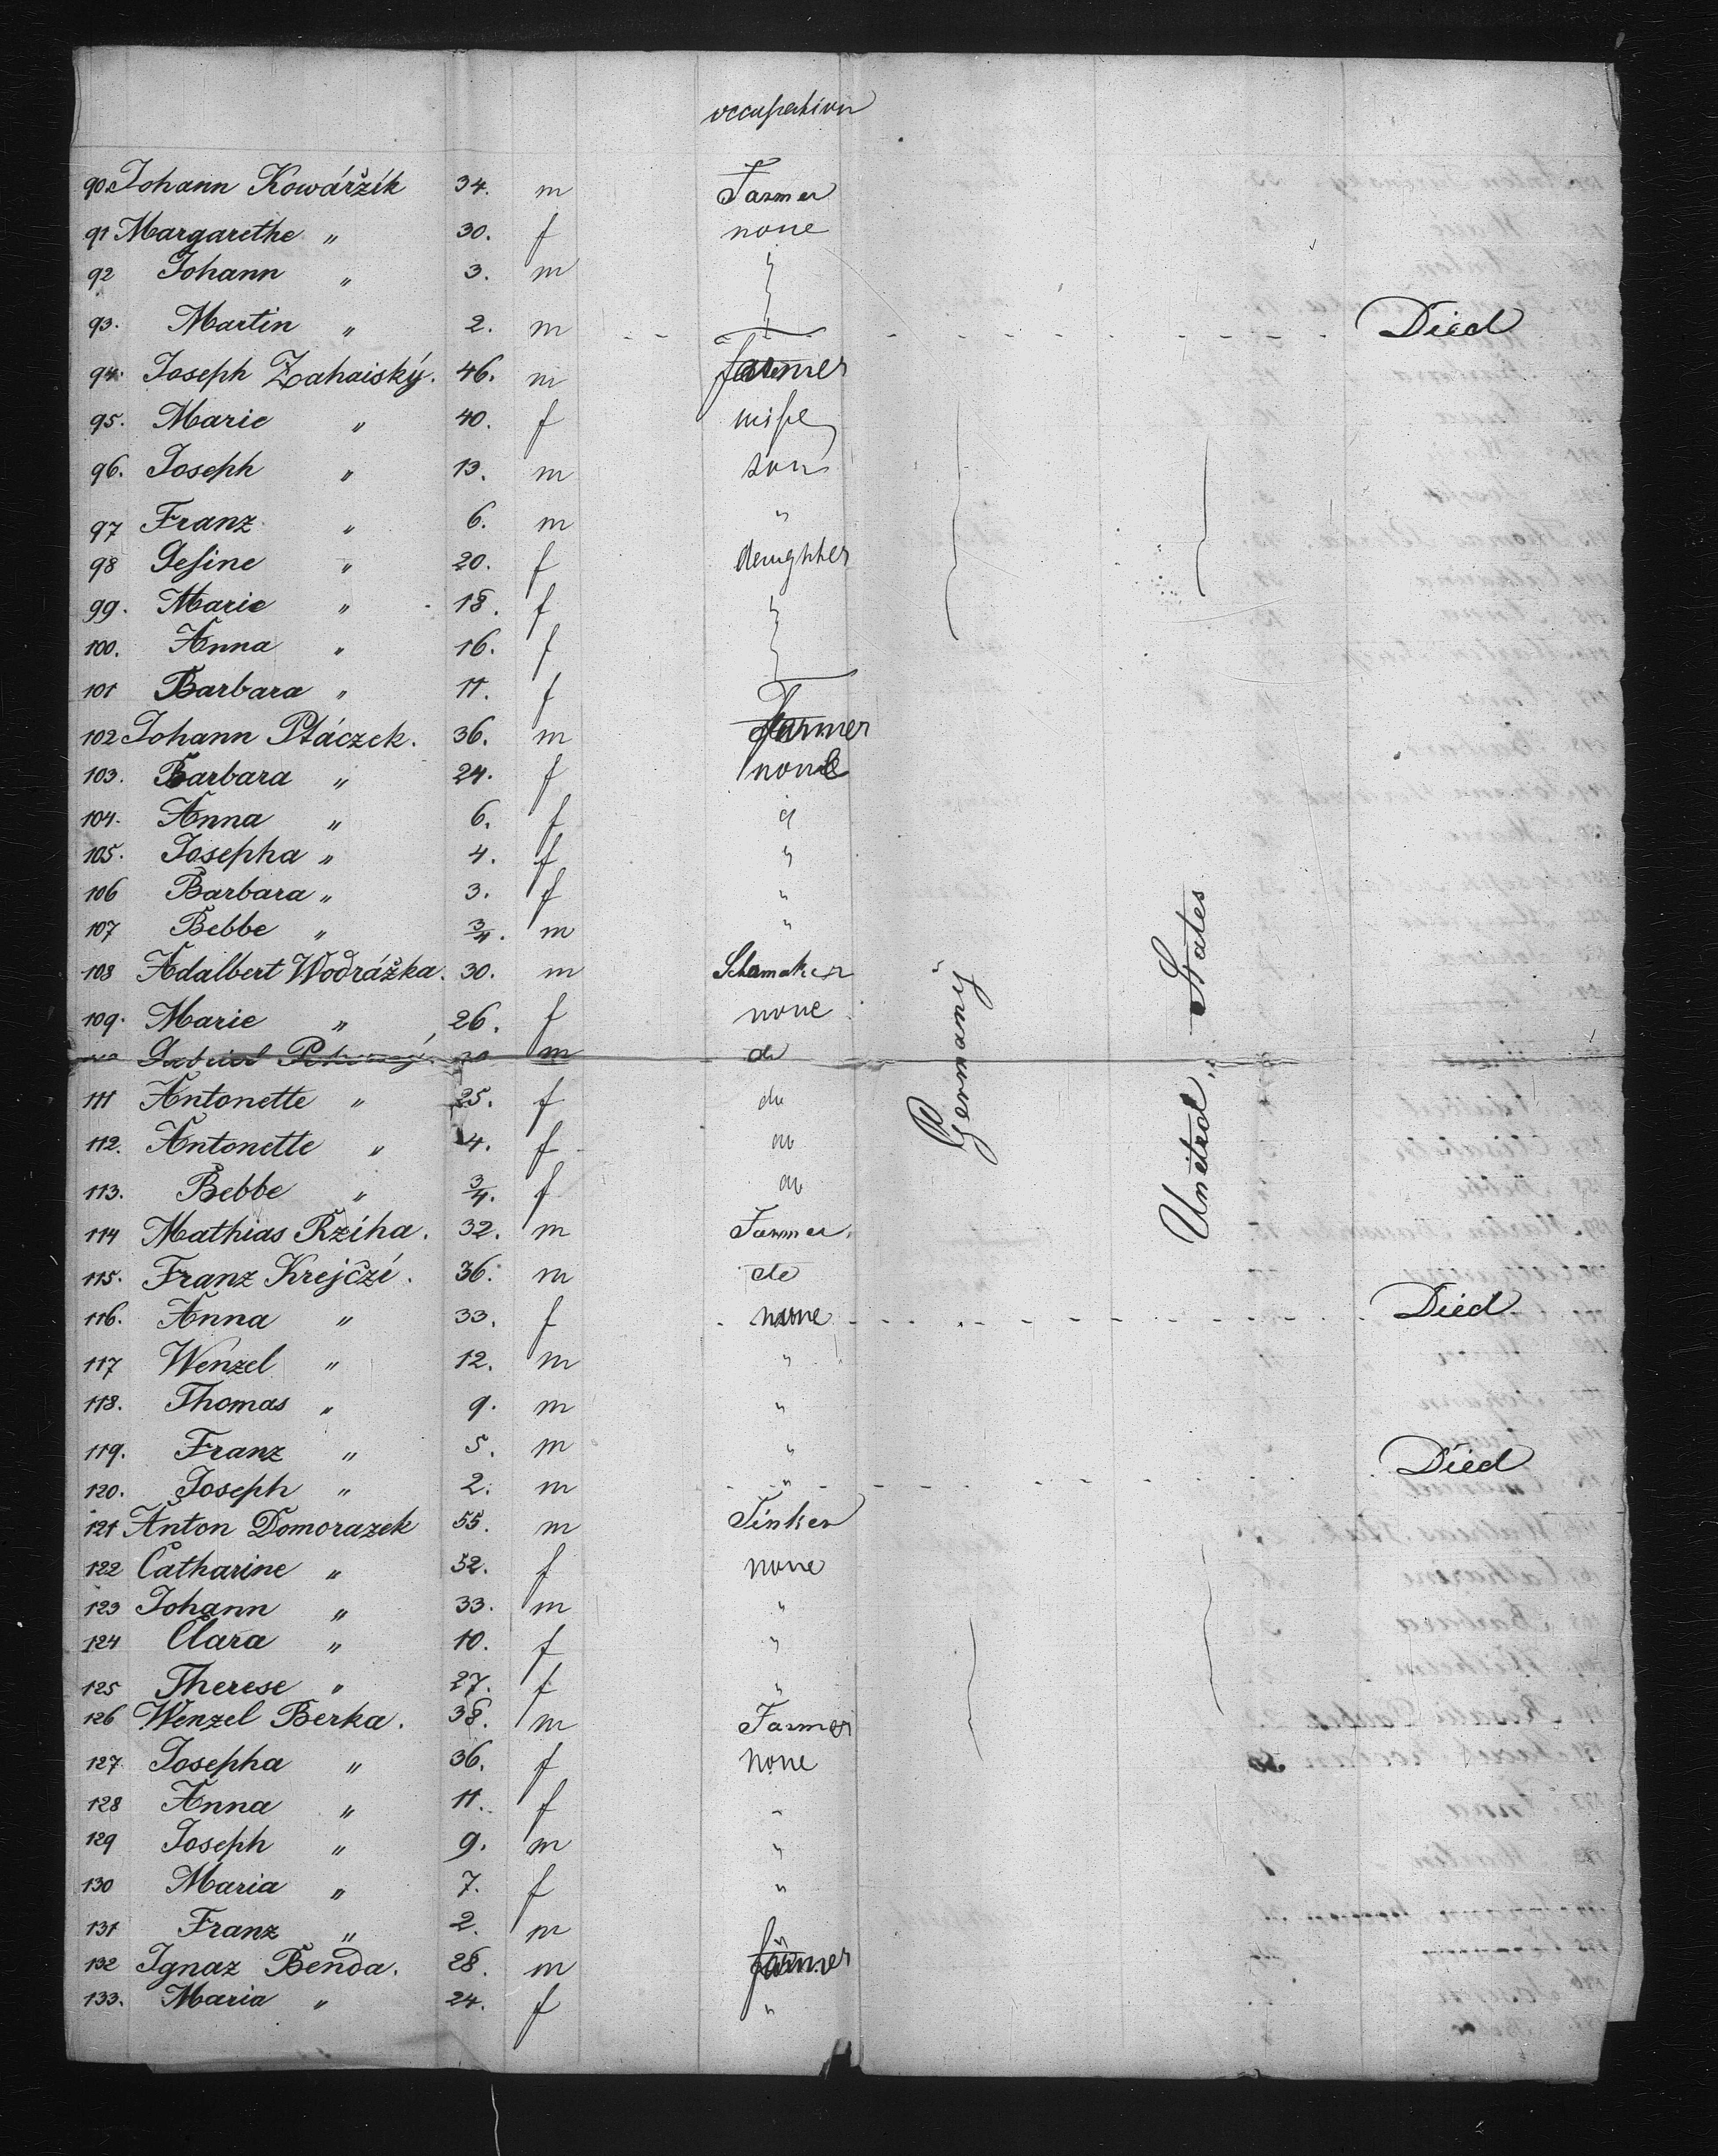 occupation
90. Johann Kowářzik 34. m Farmer
91 Margarethe " 30. f none
92 Johann " 3. m "
93. Martin " 2. m " Died
94. Joseph Zahaiský. 46. m farmer
95. Marie " 40. f wife
96. Joseph " 13. m son
97 Franz " 6. m "
98 Gesine " 20. f daughter
99. Marie " 18. f "
100. Anna " 16. f "
101 Barbara " 11. f "
102 Johann Ptáczek. 36. m farmer
103. Barbara " 24. f none
104. Anna " 6. f "
105. Josepha " 4. f "
106 Barbara " 3. f "
107 Bebbe " 3/4. m "
108 Adalbert Wodrážka. 30. m Schomaker
109. Marie " 26. f none
Gabriel m do
111 Antonette " 25. f do
112. Antonette " 4. f do
113. Bebbe " 3/4. f do
114 Mathias Rziha. 32. m Farmer.
115. Franz Krejčzí. 36. m do
116. Anna " 33. f none Died
117 Wenzel " 12. m "
118. Thomas " 9. m "
119. Franz " 5. m "
120. Joseph " 2. m " Died
121 Anton Domorazek 55. m Tinker
122 Catharine " 52. f none
123 Johann " 33. m "
124 Clara " 10. f "
125 Therese " 27. f "
126 Wenzel Berka. 38. m Farmer
127 Josepha " 36. f none
128 Anna " 11. f "
129 Joseph " 9. m "
130 Maria " 7. f "
131 Franz " 2. m "
132 Ignaz Benda. 28. m farmer
133. Maria " 24. f "
Germany
United States